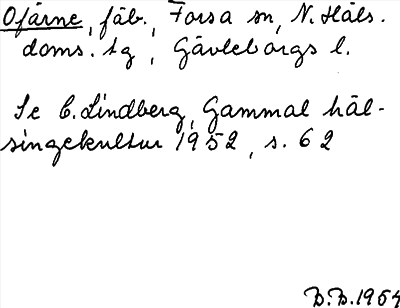 Ofärne, fäb., Forsa sn, N. Häls.
doms. tg, Gävleborgs l.
Se C. Lindberg, Gammal häl-
singekultur 1952, s. 62
B.B. 1954